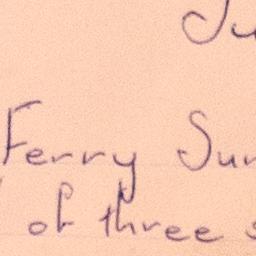 Ju
Ferry Sur
of three s